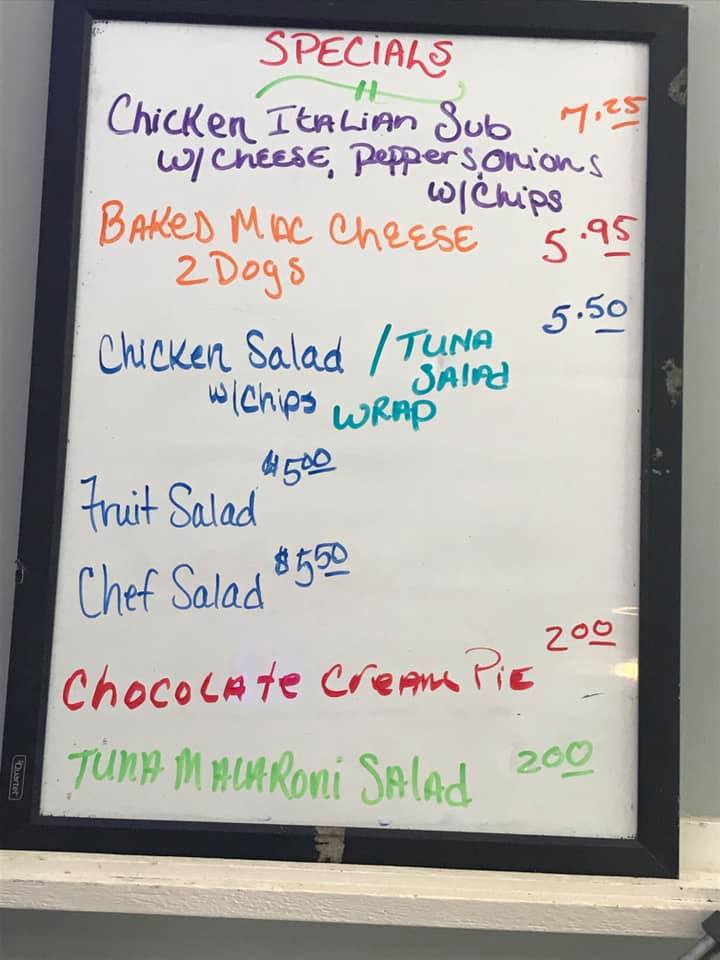 SPECIALS
Chicken Italian Sub 7.25
w/ Cheese, Peppers, onions
w/Chips
Baked Mac Cheese 5.95
2 Dogs
5.50
Chicken Salad / Tuna
Salad
w/Chips Wrap
$5.00
Fruit Salad
$5.50
Chef Salad
2.00
Chocolate Cream Pie
Tuna Macaroni Salad 2.00
Quartet